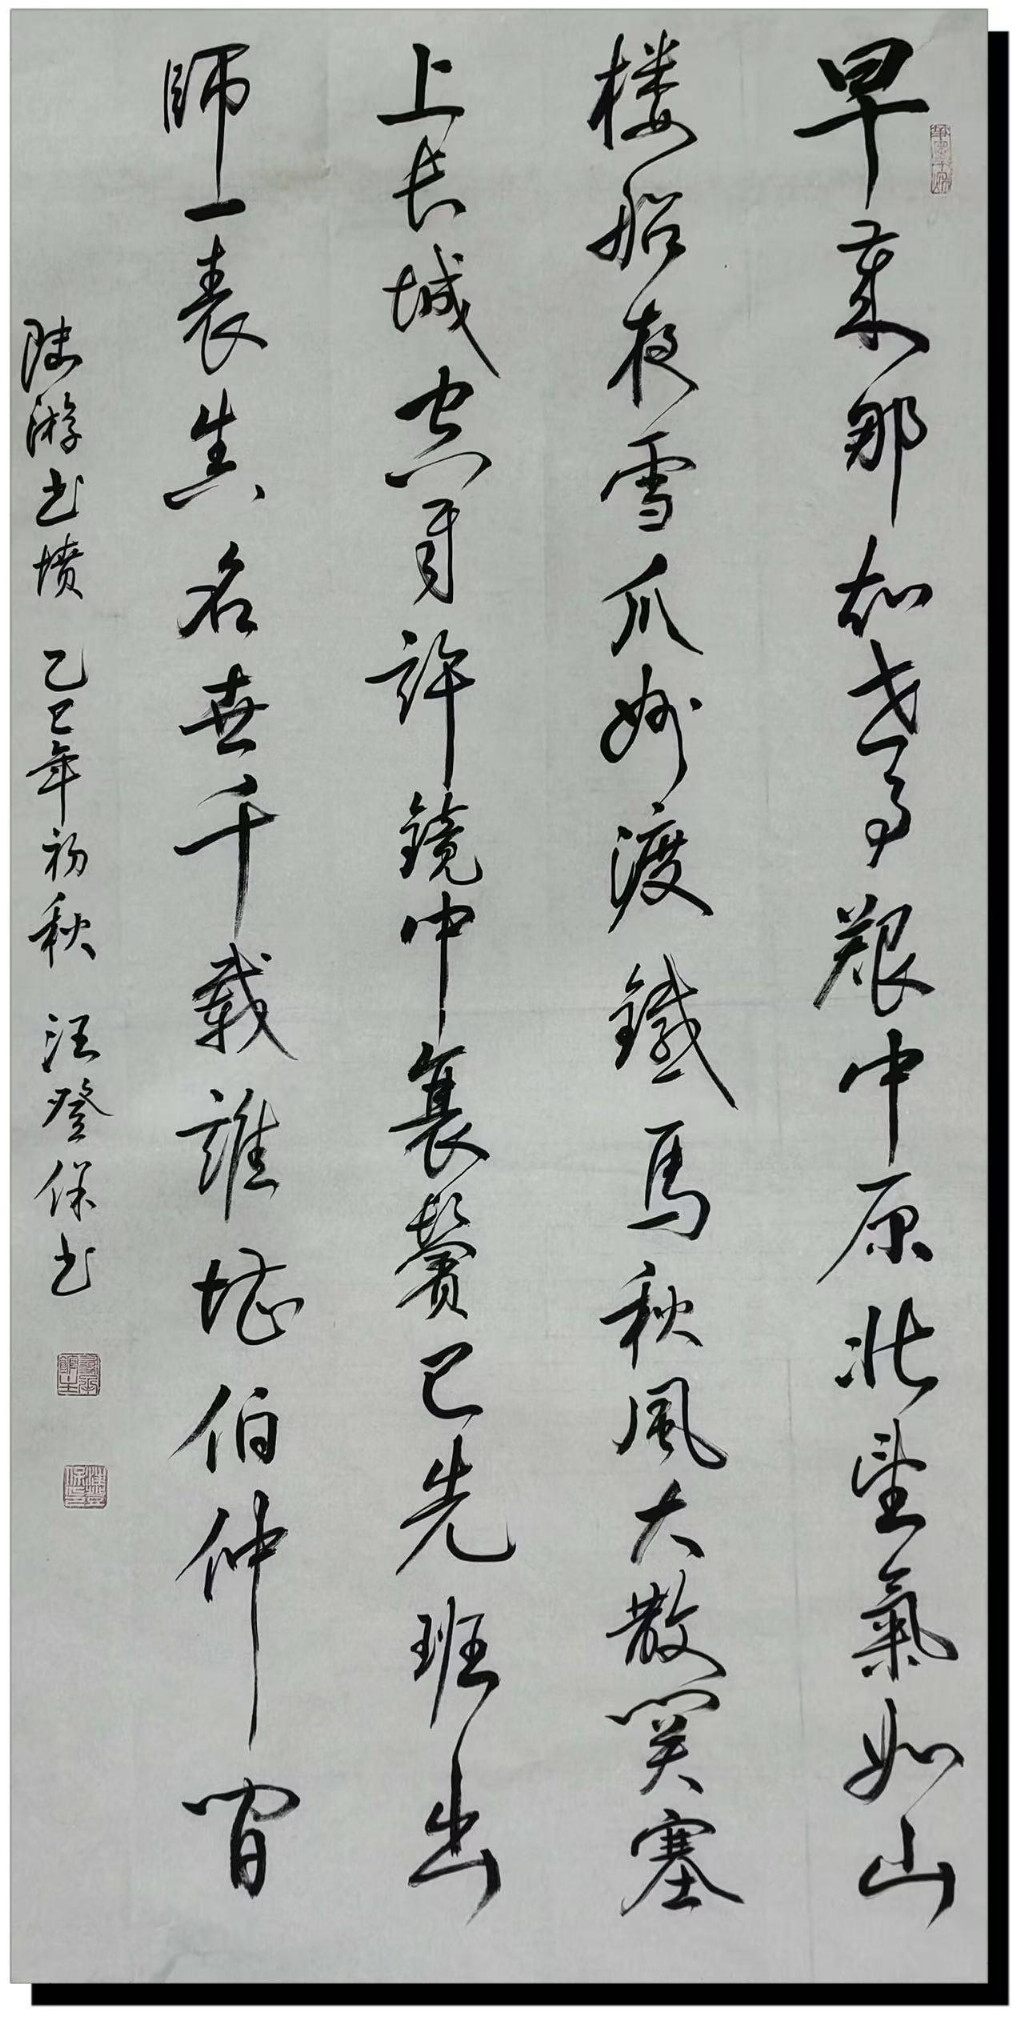 早歲那知世事艱中原北望氣如山
楼船夜雪瓜洲渡鐵馬秋風大散関塞
上长城空自許鏡中衰鬢已先班出
師一表真名世千載誰堪伯仲间
陆游书愤 乙巳年初秋 汪登保书